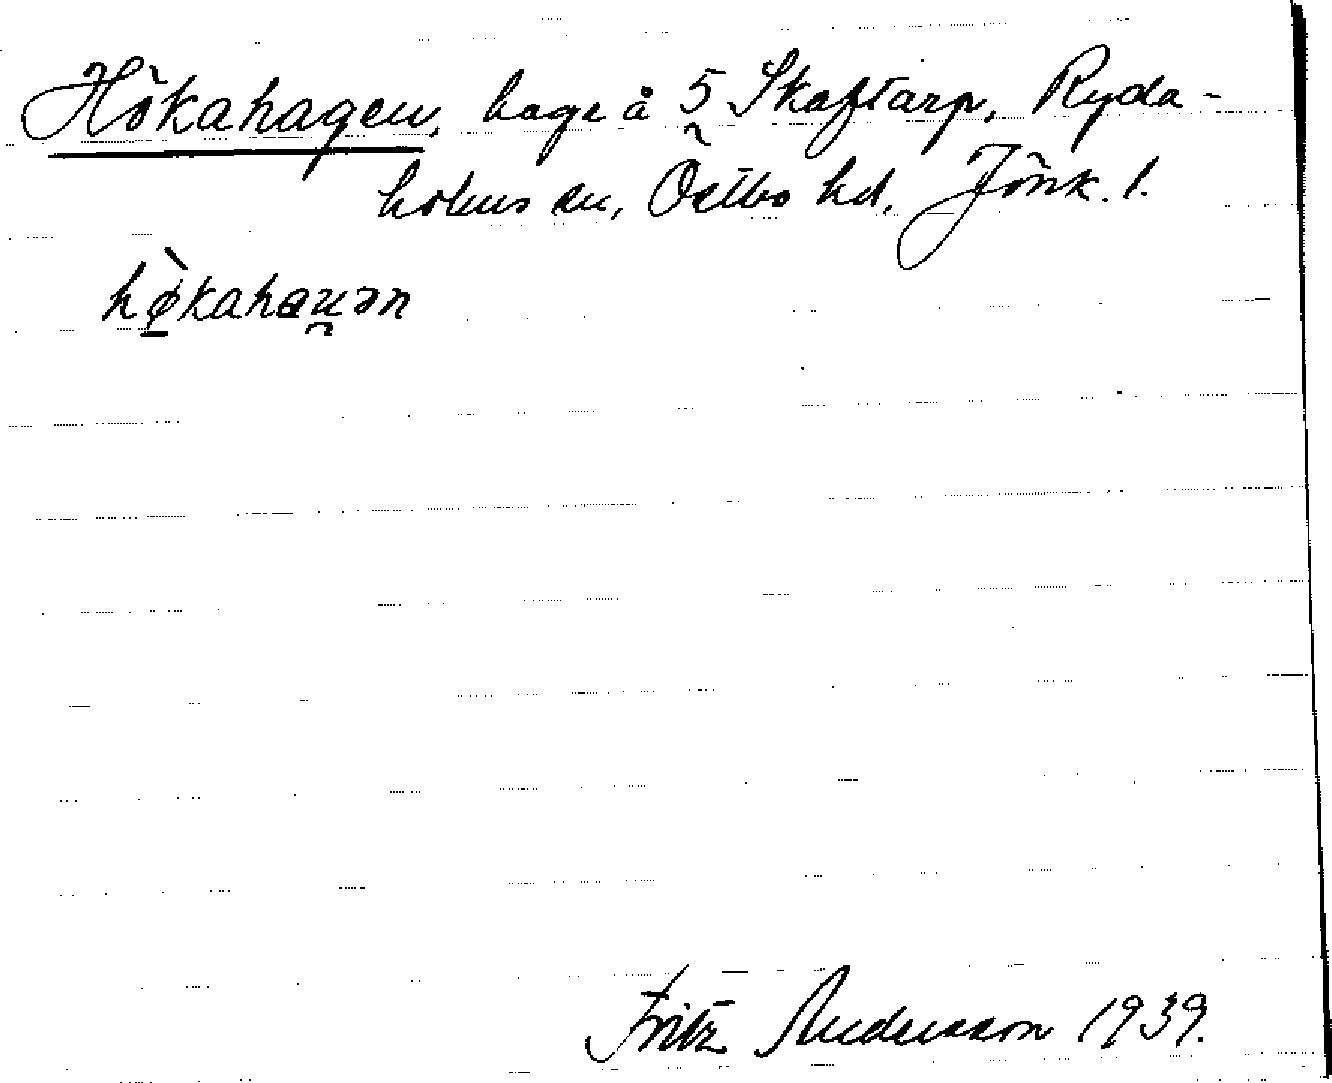 Hökahagen, hage å 5 Skaftarp, Ryda-
holms sn, Östbo hd. Jönk. l.
hø̀kahaɯ̯ən
Fritz Andersson 1939.